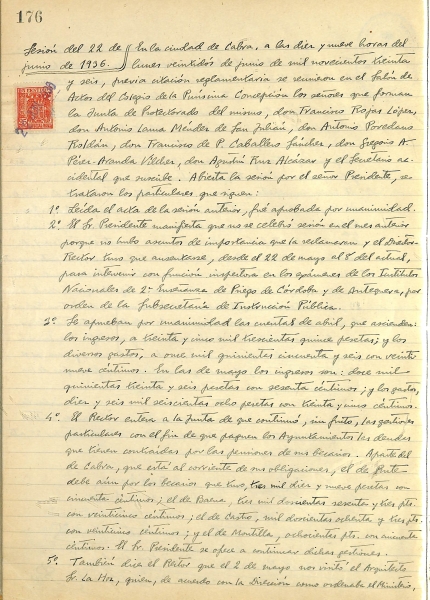 176
Sesión del 22 de
junio de 1936.
En la ciudad de Cabra, a las diez y nueve horas del
lunes veintidós de junio de mil novecientos treinta
y seis, previa citación reglamentaria se reunieron en el Salón de
Actos del Colegio de la Purísima Concepción los señores que forman
la Junta de Protectorado del mismo, don Francisco Rojas López,
don Antonio Lama Méndez de San Julián, don Antonio Povedano
Roldán, don Francisco de P. Caballero Sánchez, don Gregorio A.
Pérez-Aranda Vílchez, don Agustín Ruz Alcázar y el Secretario ac-
cidental que suscribe. Abierta la sesión por el señor Presidente, se
trataron los particulares que siguen:
1º. Leída el acta de la sesión anterior, fué aprobada por unanimidad.
2º. El Sr. Presidente manifiesta que no se celebró sesión en el mes anterior
porque no hubo asuntos de importancia que la reclamaran, y el Director-
Rector tuvo que ausentarse, desde el 22 de mayo al 8 del actual,
para intervenir con función inspectora en los exámenes de los Institutos
Nacionales de 2ª Enseñanza de Priego de Córdoba y de Antequera, por
orden de la Subsecretaría de Instrucción Pública.
3º. Se aprueban por unanimidad las cuentas de abril, que ascienden:
los ingresos, a treinta y cinco mil trescientas quince pesetas; y los
diversos gastos, a once mil quinientas cincuenta y seis con veinti-
nueve céntimos. En las de mayo los ingresos son: doce mil
quinientas treinta y seis pesetas con sesenta céntimos; y los gastos,
diez y seis mil seiscientas ocho pesetas con treinta y cinco céntimos.
4º. El Rector entera a la Junta de que continuó, sin fruto, las gestiones
particulares con el fin de que paguen los Ayuntamientos las deudas
que tienen contraídas por las pensiones de sus becarios. Aparte del
de Cabra, que está al corriente de sus obligaciones, el de
debe aún por los becarios que tuvo, tres mil diez y nueve pesetas con
cincuenta céntimos; el de Baena, tres mil doscientas sesenta y tres pts.
con veinticinco céntimos; el de Castro, mil doscientas ochenta y tres pts.
con veinticinco céntimos; y el de Montilla, ochocientas pts. con cincuenta
céntimos. El Sr. Presidente se ofrece a continuar dichas gestiones.
5º. También dice el Rector que el 2 de mayo nos visitó el Arquitecto
Sr. La Hoz, quien, de acuerdo con la Dirección como ordenaba el Ministerio,